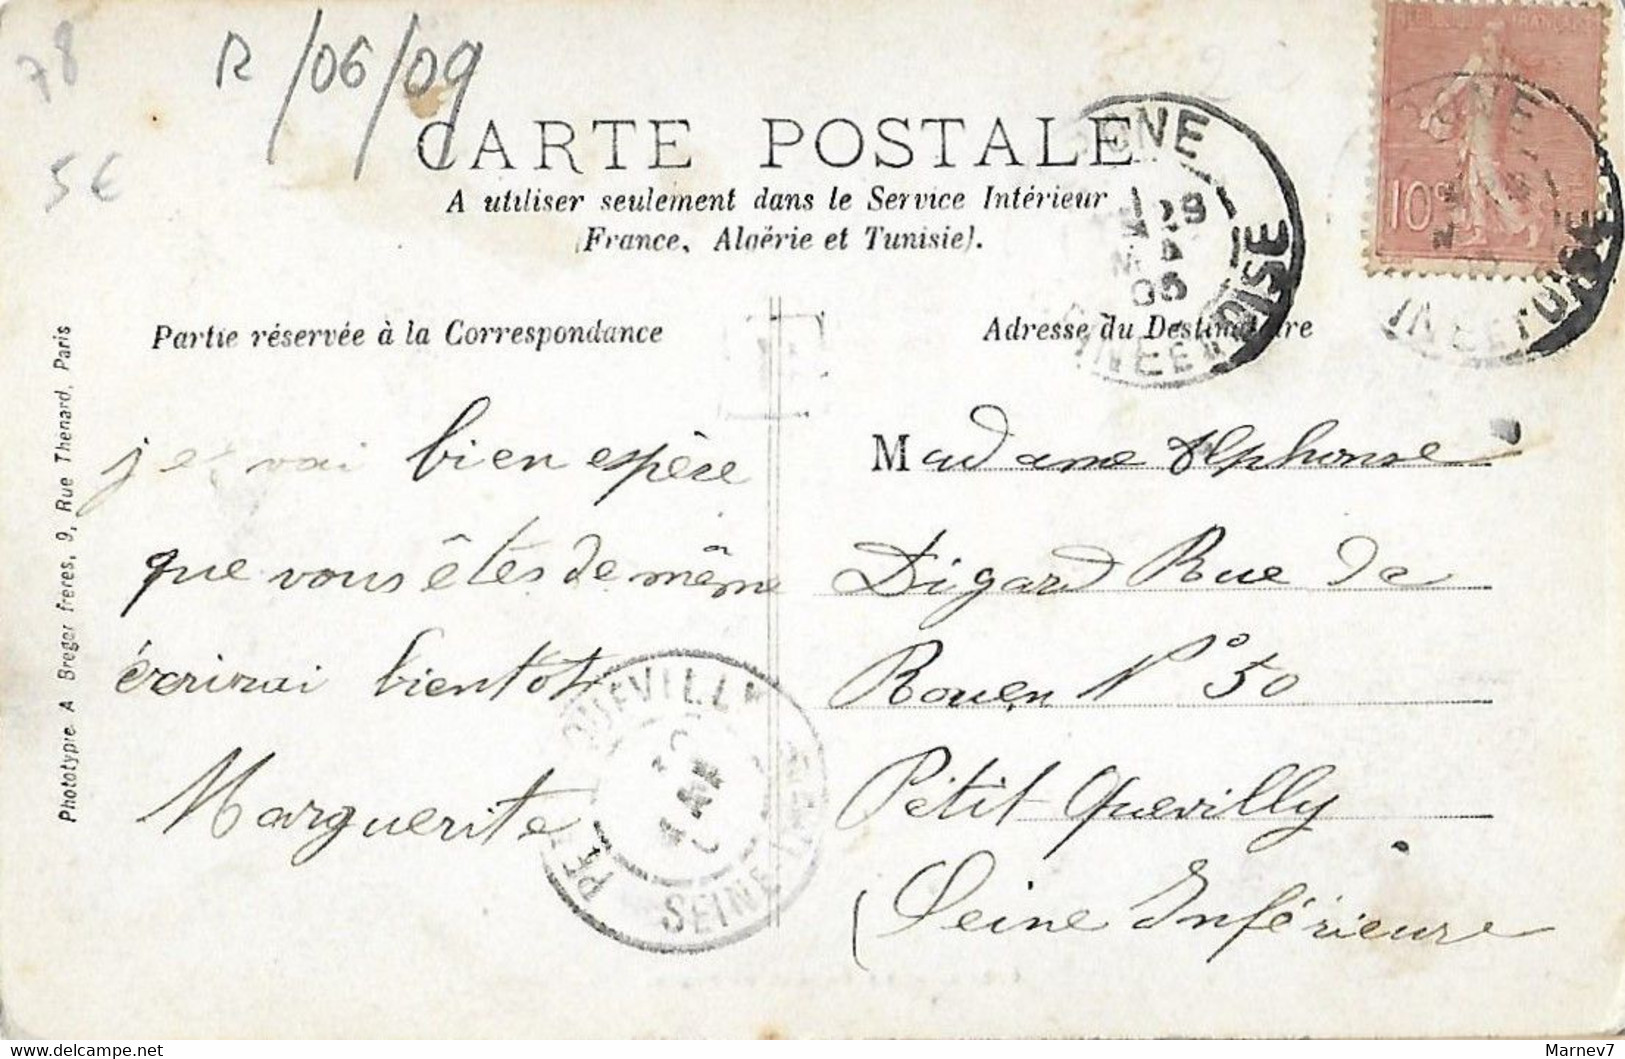 78
5€
R/06/09
CARTE POSTALE
A utiliser seulement dans le Service Intérieur
(France, Algérie et Tunisie).
10
29
05
SEINE ET OISE
SEINE ET OISE
Partie réservée à la Correspondance
Adresse du Destinataire
je vai bien espère
que vous êtes de même
écrirai bientôt
Marguerite
Madame Alphonse
Digard Rue de
Rouen N° 50
Petit Quevilly
(Seine Inférieure
PETIT QUEVILLY
SEINE INFRE
Phototypie. A Breger frères, 9, Rue Thenard, Paris
Marnev7